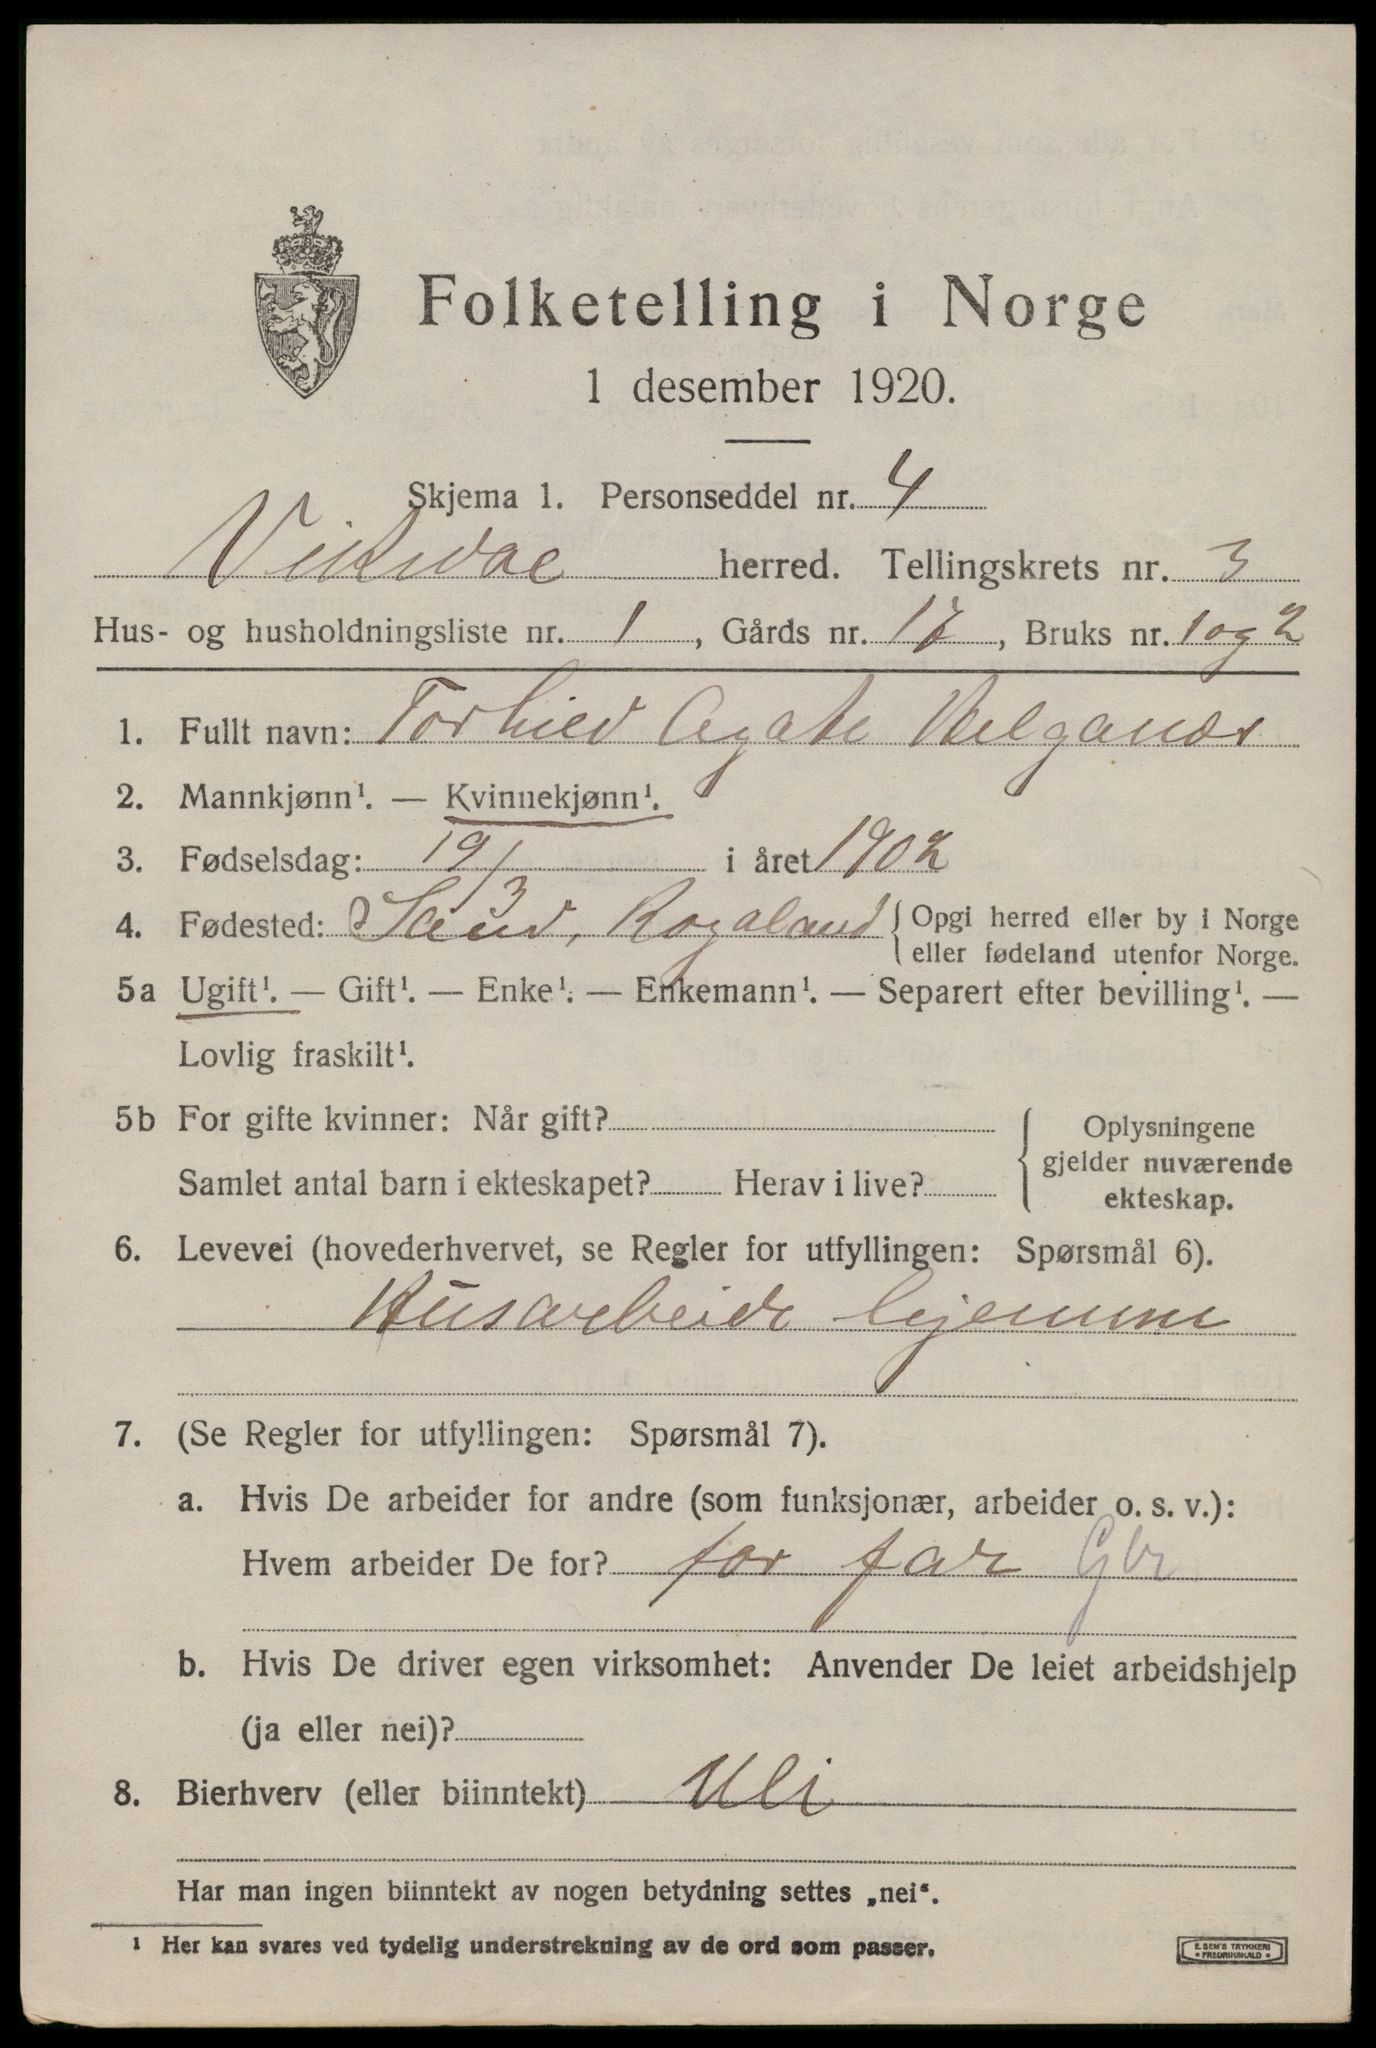 Folketelling i Norge
1 desember 1920.
Skjema 1. Personseddel nr. 4
Vikedal herred. Tellingskrets nr. 3
Hus- og husholdningsliste nr. 1, Gårds nr. 17, Bruks nr. 1 og 2
1. Fullt navn: Torhild Agate Helganes
2. Mannkjønn¹. — Kvinnekjønn¹.
3. Fødselsdag: 19/3 i året 1902
4. Fødested: Sand, Rogaland { Opgi herred eller by i Norge
eller fødeland utenfor Norge.
5a Ugift¹. — Gift¹. — Enke¹. — Enkemann¹. — Separert efter bevilling¹. —
Lovlig fraskilt¹.
5b For gifte kvinner: Når gift?
Samlet antal barn i ekteskapet? Herav i live?
{ Oplysningene
gjelder nuværende
ekteskap.
6. Levevei (hovederhvervet, se Regler for utfyllingen: Spørsmål 6).
Husarbeide hjemme
7. (Se Regler for utfyllingen: Spørsmål 7).
a. Hvis De arbeider for andre (som funksjonær, arbeider o. s. v.):
Hvem arbeider De for? for far Gbr
b. Hvis De driver egen virksomhet: Anvender De leiet arbeidshjelp
(ja eller nei)?
8. Bierhverv (eller biinntekt) Nei
Har man ingen biinntekt av nogen betydning settes „nei“.
¹ Her kan svares ved tydelig understrekning av de ord som passer.
E. SEM'S TRYKKERI
FREDRIKSHALD